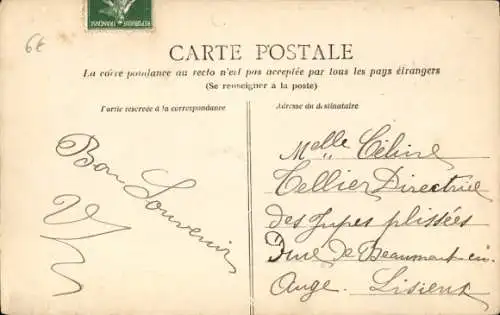 6t
RÉPUBLIQUE FRANÇAISE
CARTE POSTALE
La correspondance au recto n'est pas acceptée par tous les pays étrangers
(Se renseigner à la poste)
Partie réservée à la correspondance
Adresse du destinataire
Bon Souvenir
Melle Céline
Tellier Directrice
des Jupes plissées
Rue de Beaumont en
Auge. Lisieux